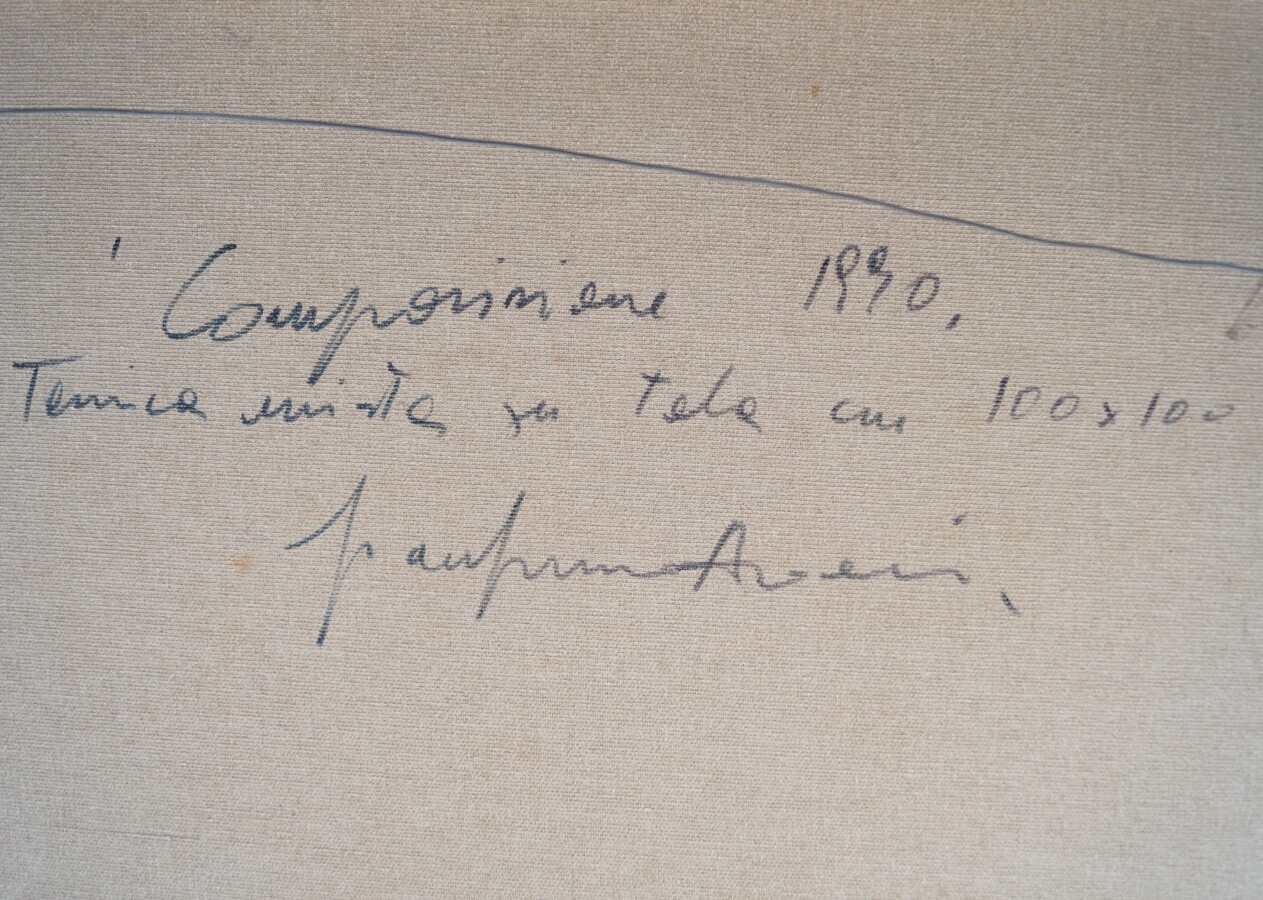 ' Composizione 1990.
Tecnica mista su tela cm 100x100